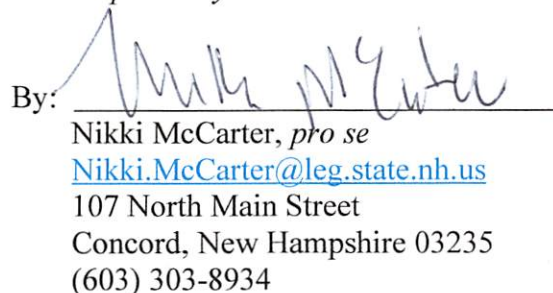 By:
Nikki McCarter, pro se
Nikki.McCarter@leg.state.nh.us
107 North Main Street
Concord, New Hampshire 03235
(603) 303-8934